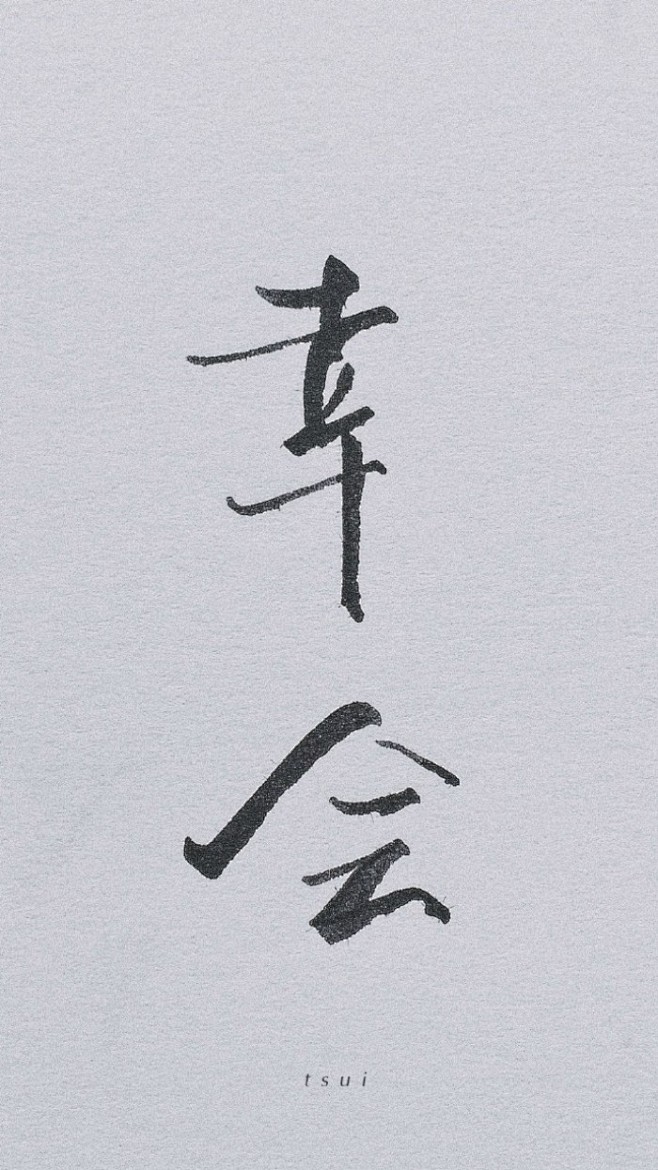 幸会
tsui